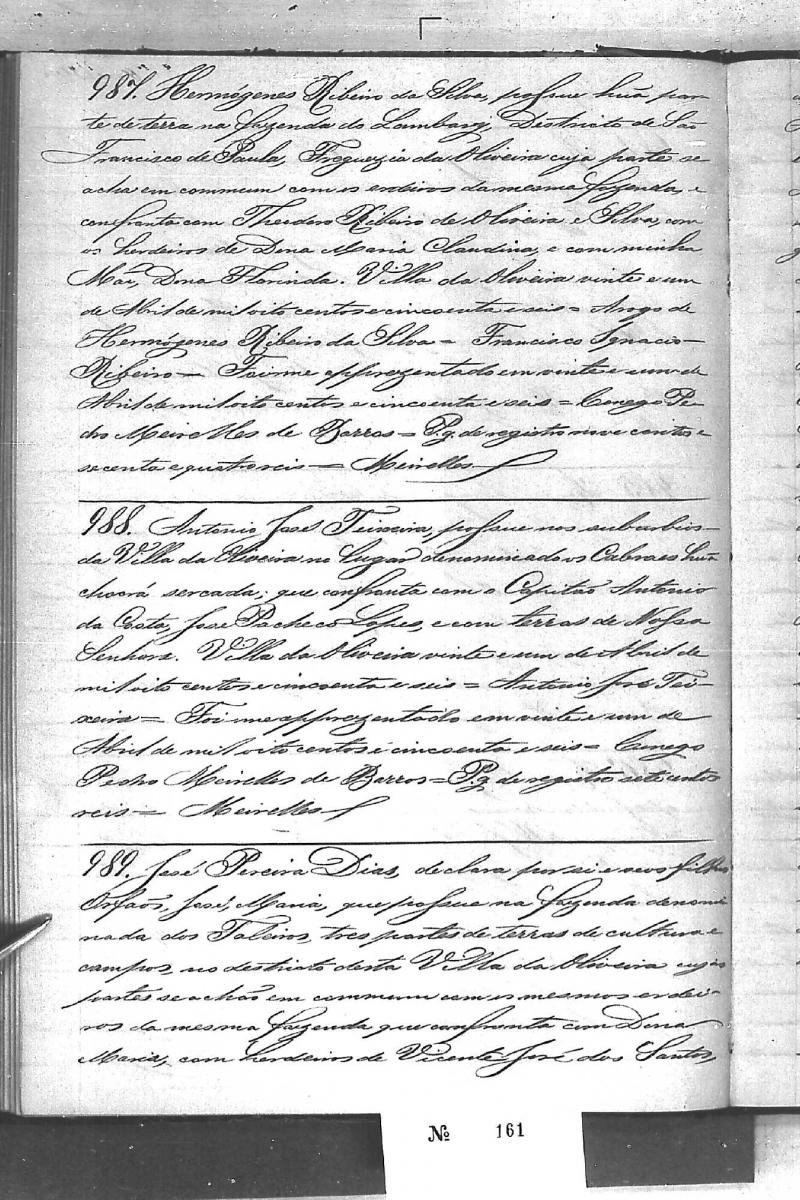 987. Hermógenes Ribeiro da Silva, possue huã par-
te de terra na fazenda do Lambary, Destricto de São
Francisco de Paula, Freguezia da Oliveira cuja parte se
acha em commum com os erdeiros da mesma fazenda, e
confranta com Theodoro Ribeiro de Oliveira e Silva, com
os herdeiros de Dona Maria Claudina, e com minha
Mãi, Dona Florinda. Villa da Oliveira vinte e um
de Abril de mil oito centos e cincoenta e seis = Arogo de
Hermógenes Ribeiro da Silva = Francisco Ignacio
Ribeiro = Foi me apprezentado em vinte e um de
Abril de mil oito centos e cincoenta e seis = Conego Pe-
dro Meirelles de Barros = Pg. de registro nove centos e
secenta e quatro reis = Meirelles
988. Antonio José Teixeira, possue nos suburbios
da Villa da Oliveira no Lugar denominado os Cabraes huã
chacrá sercada; que confranta com o Capitão Antonio
da Costa, Jose Pacheco Lopes, e com terras de Nossa
Senhora. Villa da Oliveira vinte e um de Abril de
mil oito centos e cincoenta e seis = Antonio José Tei-
xeira = Foi me apprezentado em vinte e um de
Abril de mil oito centos e cincoenta e seis = Conego
Pedro Meirelles de Barros = Pg. de registro sete centos
reis = Meirelles
989. José Pereira Dias, declara por si e seos filhos
Orfaõs, José, Maria, que possue na fazenda denomi-
nada dos Taleiros, tres partes de terras de cultura e
campos, no destricto desta Villa da Oliveira cujas
partes se achão em commum com os mesmos erdei-
ros da mesma fazenda que confranta com Dona
Maria, com herdeiros de Vicente José dos Santos,
№ 161